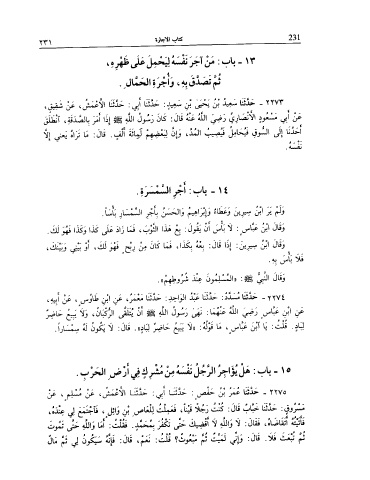 231 كتاب الإجارة ٢٣١
١٣ - باب: مَنْ آجَرَ نَفْسَهُ لِيَحْمِلَ عَلَى ظَهْرِهِ،
ثُمَّ تَصَدَّقَ بِهِ، وَأُجْرَةِ الحَمَّالِ.
٢٢٧٣ - حَدَّثَنَا سَعِيدُ بْنُ يَحْيَى بْنِ سَعِيدٍ: حَدَّثَنَا أَبِي: حَدَّثَنَا الأَعْمَشُ، عَنْ شَقِيقٍ،
عَنْ أَبِي مَسْعُودٍ الأَنْصَارِيِّ رَضِيَ اللَّهُ عَنْهُ قَالَ: كَانَ رَسُولُ اللَّهِ ﷺ إِذَا أَمَرَ بِالصَّدَقَةِ، انْطَلَقَ
أَحَدُنَا إِلَى السُّوقِ فَيُحَامِلُ فَيُصِيبُ المُدَّ، وَإِنَّ لِبَعْضِهِمْ لَمِائَةَ أَلْفٍ. قَالَ: مَا نَرَاهُ يَعْنِي إِلَّا
نَفْسَهُ.
١٤ - باب: أَجْرِ السَّمْسَرَةِ.
وَلَمْ يَرَ ابْنُ سِيرِينَ وَعَطَاءٌ وَإِبْرَاهِيمُ وَالحَسَنُ بِأَجْرِ السِّمْسَارِ بَأْسًا.
وَقَالَ ابْنُ عَبَّاسٍ: لَا بَأْسَ أَنْ يَقُولَ: بِعْ هَذَا الثَّوْبَ، فَمَا زَادَ عَلَى كَذَا وَكَذَا فَهُوَ لَكَ.
وَقَالَ ابْنُ سِيرِينَ: إِذَا قَالَ: بِعْهُ بِكَذَا، فَمَا كَانَ مِنْ رِبْحٍ فَهُوَ لَكَ، أَوْ بَيْنِي وَبَيْنَكَ،
فَلَا بَأْسَ بِهِ.
وَقَالَ النَّبِيُّ ﷺ: «المُسْلِمُونَ عِنْدَ شُرُوطِهِمْ».
٢٢٧٤ - حَدَّثَنَا مُسَدَّدٌ: حَدَّثَنَا عَبْدُ الوَاحِدِ: حَدَّثَنَا مَعْمَرٌ، عَنِ ابْنِ طَاوُسٍ، عَنْ أَبِيهِ،
عَنِ ابْنِ عَبَّاسٍ رَضِيَ اللَّهُ عَنْهُمَا: نَهَى رَسُولُ اللَّهِ ﷺ أَنْ يُتَلَقَّى الرُّكْبَانُ، وَلَا يَبِيعَ حَاضِرٌ
لِبَادٍ. قُلْتُ: يَا ابْنَ عَبَّاسٍ، مَا قَوْلُهُ: «لَا يَبِيعُ حَاضِرٌ لِبَادٍ». قَالَ: لَا يَكُونُ لَهُ سِمْسَارًا.
١٥ - باب: هَلْ يُؤَاجِرُ الرَّجُلُ نَفْسَهُ مِنْ مُشْرِكٍ فِي أَرْضِ الحَرْبِ.
٢٢٧٥ - حَدَّثَنَا عُمَرُ بْنُ حَفْصٍ: حَدَّثَنَا أَبِي: حَدَّثَنَا الأَعْمَشُ، عَنْ مُسْلِمٍ، عَنْ
مَسْرُوقٍ: حَدَّثَنَا خَبَّابٌ قَالَ: كُنْتُ رَجُلًا قَيْنًا، فَعَمِلْتُ لِلْعَاصِ بْنِ وَائِلٍ، فَاجْتَمَعَ لِي عِنْدَهُ،
فَأَتَيْتُهُ أَتَقَاضَاهُ، فَقَالَ: لَا وَاللَّهِ لَا أَقْضِيكَ حَتَّى تَكْفُرَ بِمُحَمَّدٍ. فَقُلْتُ: أَمَا وَاللَّهِ حَتَّى تَمُوتَ
ثُمَّ تُبْعَثَ فَلَا. قَالَ: وَإِنِّي لَمَيِّتٌ ثُمَّ مَبْعُوثٌ؟ قُلْتُ: نَعَمْ، قَالَ: فَإِنَّهُ سَيَكُونُ لِي ثَمَّ مَالٌ